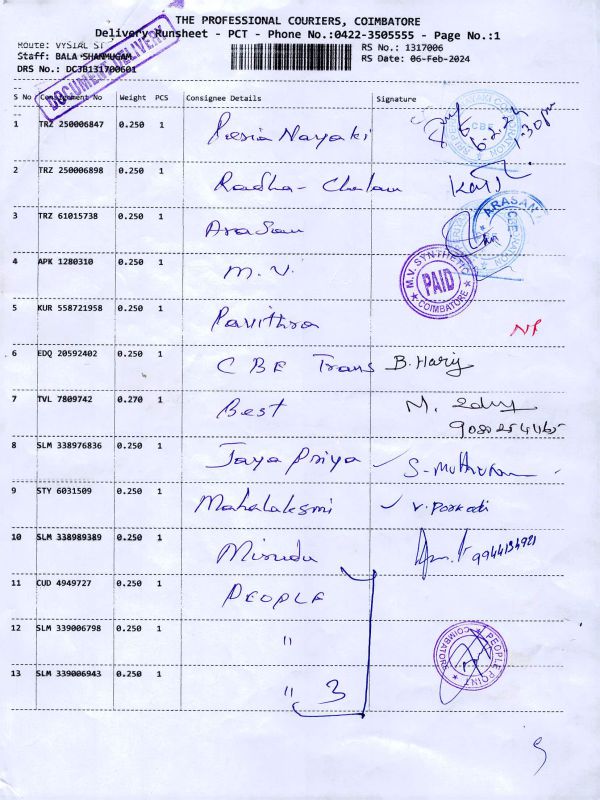 THE PROFESSIONAL COURIERS, COIMBATORE
Delivery Runsheet - PCT - Phone No.:0422-3505555 - Page No.:1
Route: VYSIAL ST
RS No.: 1317006
Staff: BALA SHANMUGAM
RS Date: 06-Feb-2024
DRS No.: DCJB131700601
DOCUMENT DELIVERY
S No Consignment No Weight PCS Consignee Details Signature
1 TRZ 250006847 0.250 1 Nayaki 6.2.24 1.30pm
2 TRZ 250006898 0.250 1 Radha-
3 TRZ 61015738 0.250 1 Arasan ARASAN
4 APK 1280310 0.250 1 M.V. M.V. SYNTHETIC PAID COIMBATORE
5 KUR 558721958 0.250 1 Pavithra NP
6 EDQ 20592402 0.250 1 CBE Trans B. Harij
7 TVL 7809742 0.270 1 Best M.
8 SLM 338976836 0.250 1 Jaya Priya S-
9 STY 6031509 0.250 1 Mahalaksmi V.
10 SLM 338989389 0.250 1 9944134921
11 CUD 4949727 0.250 1 PEOPLE
12 SLM 339006798 0.250 1 " PEOPLE POINT COIMBATORE
13 SLM 339006943 0.250 1 " 3